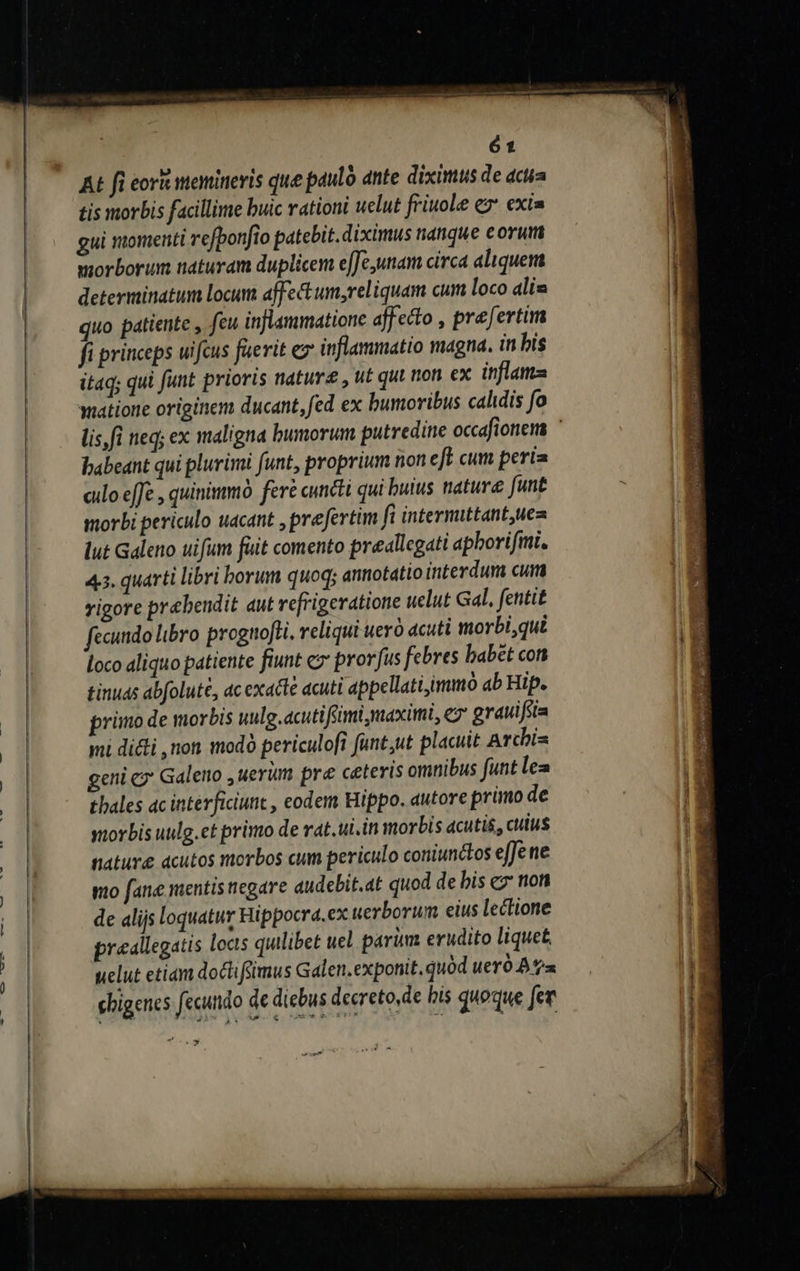 61
At ſi eorū memineris quæ paulò ante diximus de acu=
tis morbis facillime huic rationi uelut friuolæ & exi=
gui momenti reſponſio patebit. diximus nanque eorum
morborum naturam duplicem eſſe, unam circa aliquem
determinatum locum affectum, reliquam cum loco ali=
quo patiente, ſeu inflammatione affecto, præſertim
ſi princeps uiſcus fuerit & inflammatio magna. in his
itaq; qui ſunt prioris naturæ, ut qui non ex inflam=
matione originem ducant, ſed ex humoribus calidis ſo
lis, ſi neq; ex maligna humorum putredine occaſionem
habeant qui plurimi ſunt, proprium non eſt cum peri=
culo eſſe, quinimmò ferè cuncti qui huius naturæ ſunt
morbi periculo uacant, præſertim ſi intermittant, ue=
lut Galeno uiſum fuit comento præallegati aphoriſmi.
43. quarti libri horum quoq; annotatio interdum cum
rigore præhendit aut refrigeratione uelut Gal. ſentit
ſecundo libro prognoſti. reliqui uerò acuti morbi, qui
loco aliquo patiente fiunt & prorſus febres habēt con
tinuas abſolutè, ac exactè acuti appellati, immò ab Hip.
primo de morbis uulg. acutiſsimi, maximi, & grauiſsi=
mi dicti, non modò periculoſi ſunt, ut placuit Archi=
geni & Galeno, uerùm præ cæteris omnibus ſunt le=
thales ac interficiunt, eodem Hippo. autore primo de
morbis uulg. et primo de rat. ui. in morbis acutis, cuius
naturæ acutos morbos cum periculo coniunctos eſſe ne
mo ſanæ mentis negare audebit. at quod de his & non
de alijs loquatur Hippocra. ex uerborum eius lectione
præallegatis locis quilibet uel parùm erudito liquet,
uelut etiam doctiſsimus Galen. exponit. quòd uerò Ar=
chigenes ſecundo de diebus decreto. de his quoque ſer